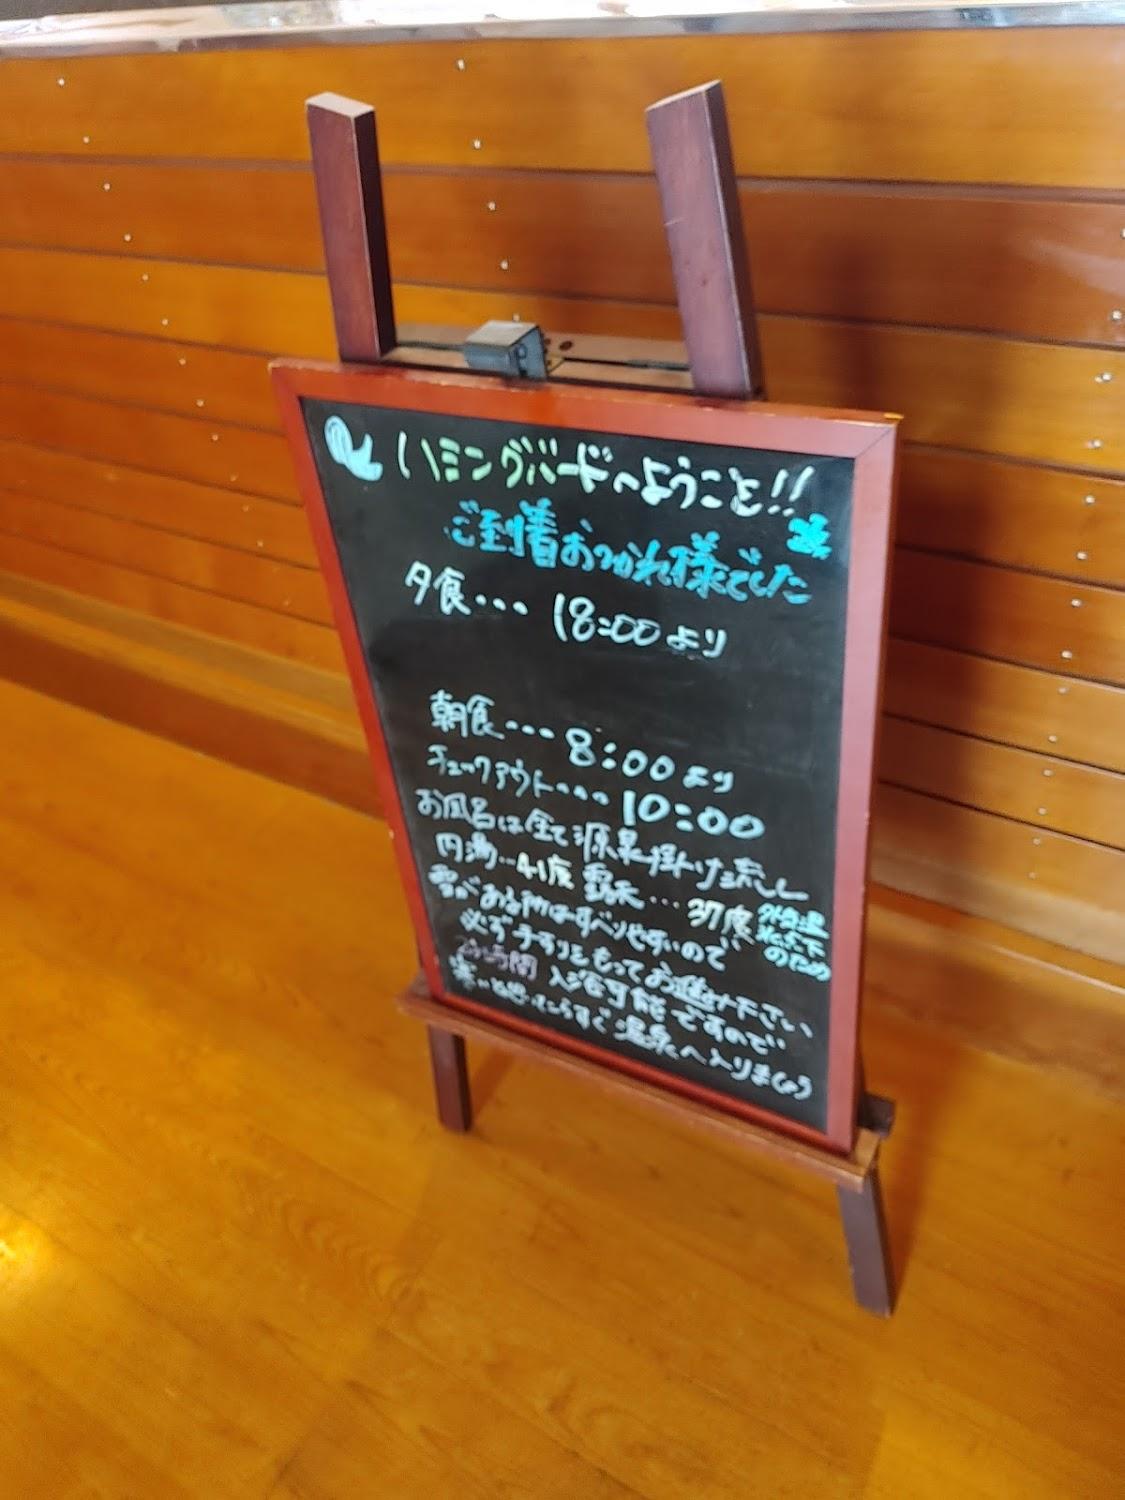 ハミングバードへようこそ!!
ご到着おつかれ様でした
夕食・・・ 18:00より
朝食・・・ 8:00より
チェックアウト・・・ 10:00
お風呂は全て源泉掛け流し
内湯・・41度 露天・・・37度 外気温 低下 のため
雪がある所はすべりやすいので
必ず手すりをもってお進み下さい
24時間 入浴可能ですので
寒いと思ったらすぐ温泉へ入りましょう